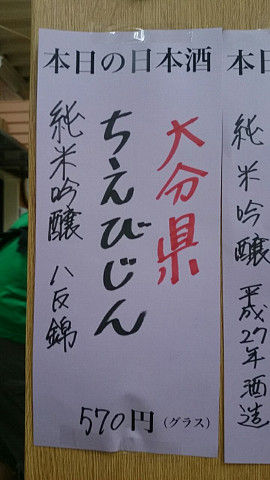 本日の日本酒
大分県
ちえびじん
純米吟醸 八反錦
570円(グラス)
本日
純米吟醸 平成27年酒造